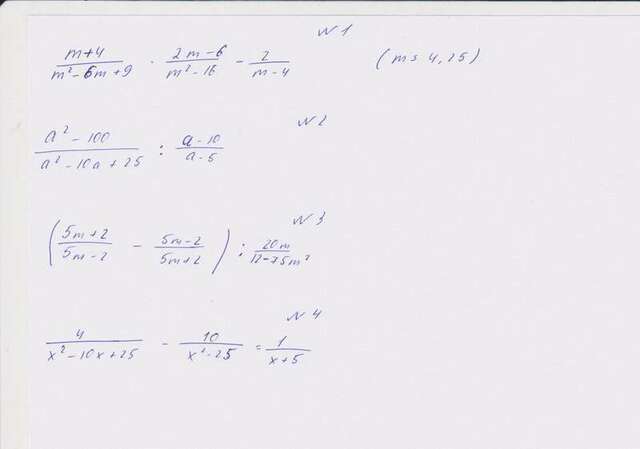 N 1
(m+4)/(m² - 6m + 9) · (2m - 6)/(m² - 16) - 2/(m - 4) (m = 4,25)
N 2
(a² - 100)/(a² - 10a + 25) : (a - 10)/(a - 5)
N 3
((5m + 2)/(5m - 2) - (5m - 2)/(5m + 2)) : 20m/(12 - 75m²)
N 4
4/(x² - 10x + 25) - 10/(x² - 25) = 1/(x + 5)